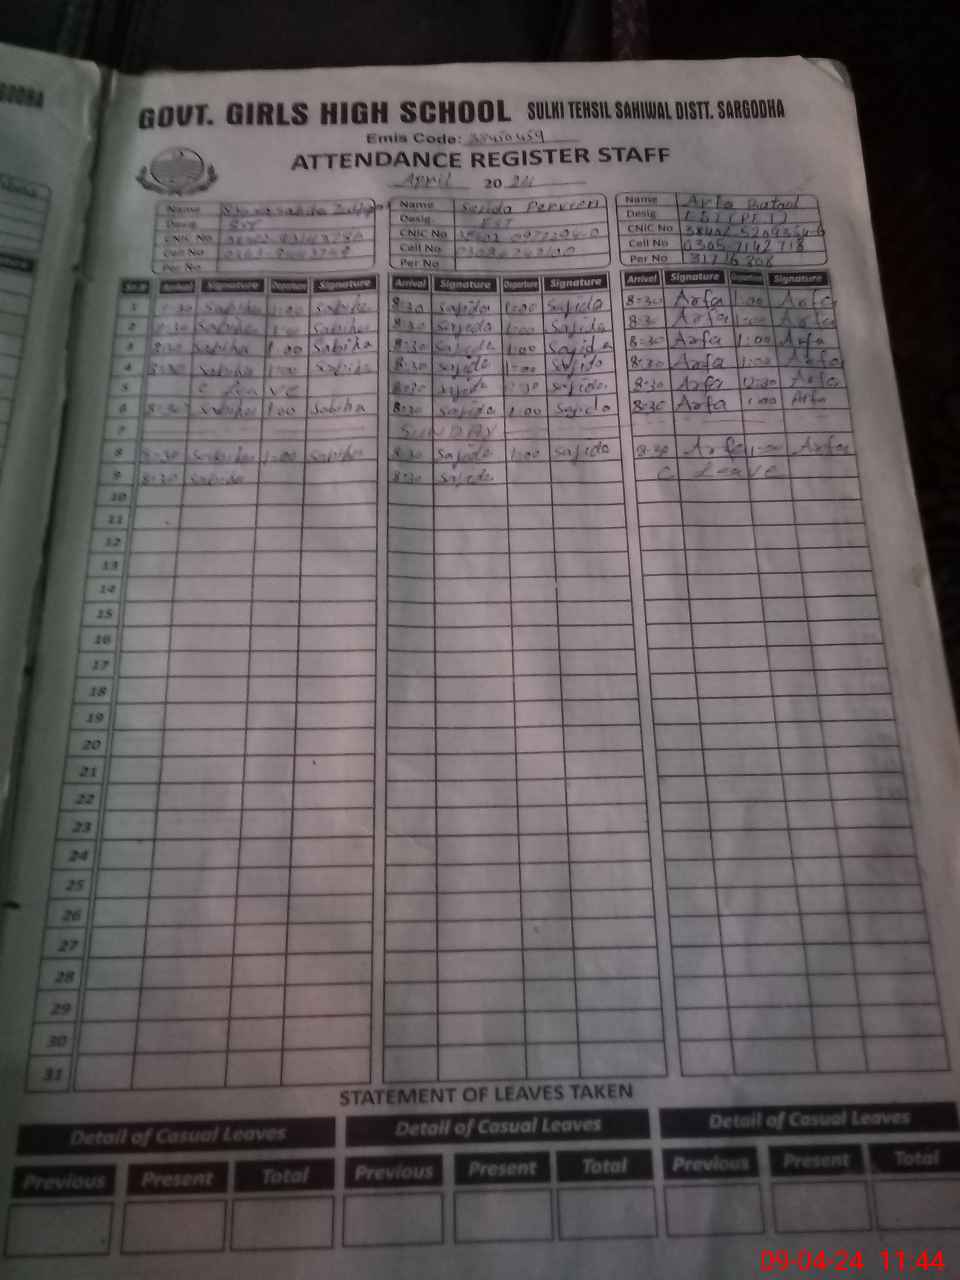 GODHA
GOVT. GIRLS HIGH SCHOOL SULKI TEHSIL SAHIWAL DISTT. SARGODHA
Emis Code:
ATTENDANCE REGISTER STAFF
April 2024
Name Name Sajida Perveen Name Arfa Batool
Desig Desig EST Desig
CNIC No CNIC No CNIC No
Cell No Cell No Cell No 0305 7142718
Per No Per No Per No
Sr.# Arrival Signature Departure Signature Arrival Signature Departure Signature Arrival Signature Departure Signature
1 8:30 Sabiha 1:00 Sabiha 8:30 Sajida 1:00 Sajida 8:30 Arfa 1:00 Arfa
2 8:30 Sabiha 1:00 Sabiha 8:30 Sajida 1:00 Sajida 8:30 Arfa 1:00 Arfa
3 8:30 Sabiha 1:00 Sabiha 8:30 Sajida 1:00 Sajida 8:30 Arfa 1:00 Arfa
4 8:30 Sabiha 1:00 Sabiha 8:30 Sajida 1:00 Sajida 8:30 Arfa 1:00 Arfa
5 C Leave 8:30 Sajida Sajida 8:30 Arfa 12:30 Arfa
6 8:30 Sabiha 1:00 Sabiha 8:30 Sajida 1:00 Sajida 8:30 Arfa 1:00 Arfa
7 SUNDAY
8 8:30 Sabiha 1:00 Sabiha 8:30 Sajida 1:00 Sajida 8:30 Arfa 1:00 Arfa
9 8:30 Sabiha 8:30 Sajida C Leave
10
11
12
13
14
15
16
17
18
19
20
21
22
23
24
25
26
27
28
29
30
31
STATEMENT OF LEAVES TAKEN
Detail of Casual Leaves Detail of Casual Leaves Detail of Casual Leaves
Previous Present Total Previous Present Total Previous Present Total
09-04-24 11:44